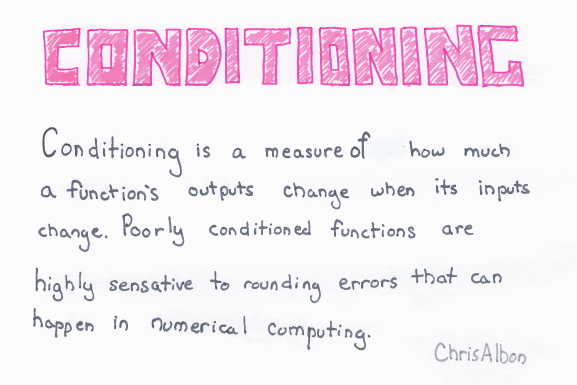 CONDITIONING
Conditioning is a measure of how much
a function's outputs change when its inputs
change. Poorly conditioned functions are
highly sensative to rounding errors that can
happen in numerical computing.
ChrisAlbon